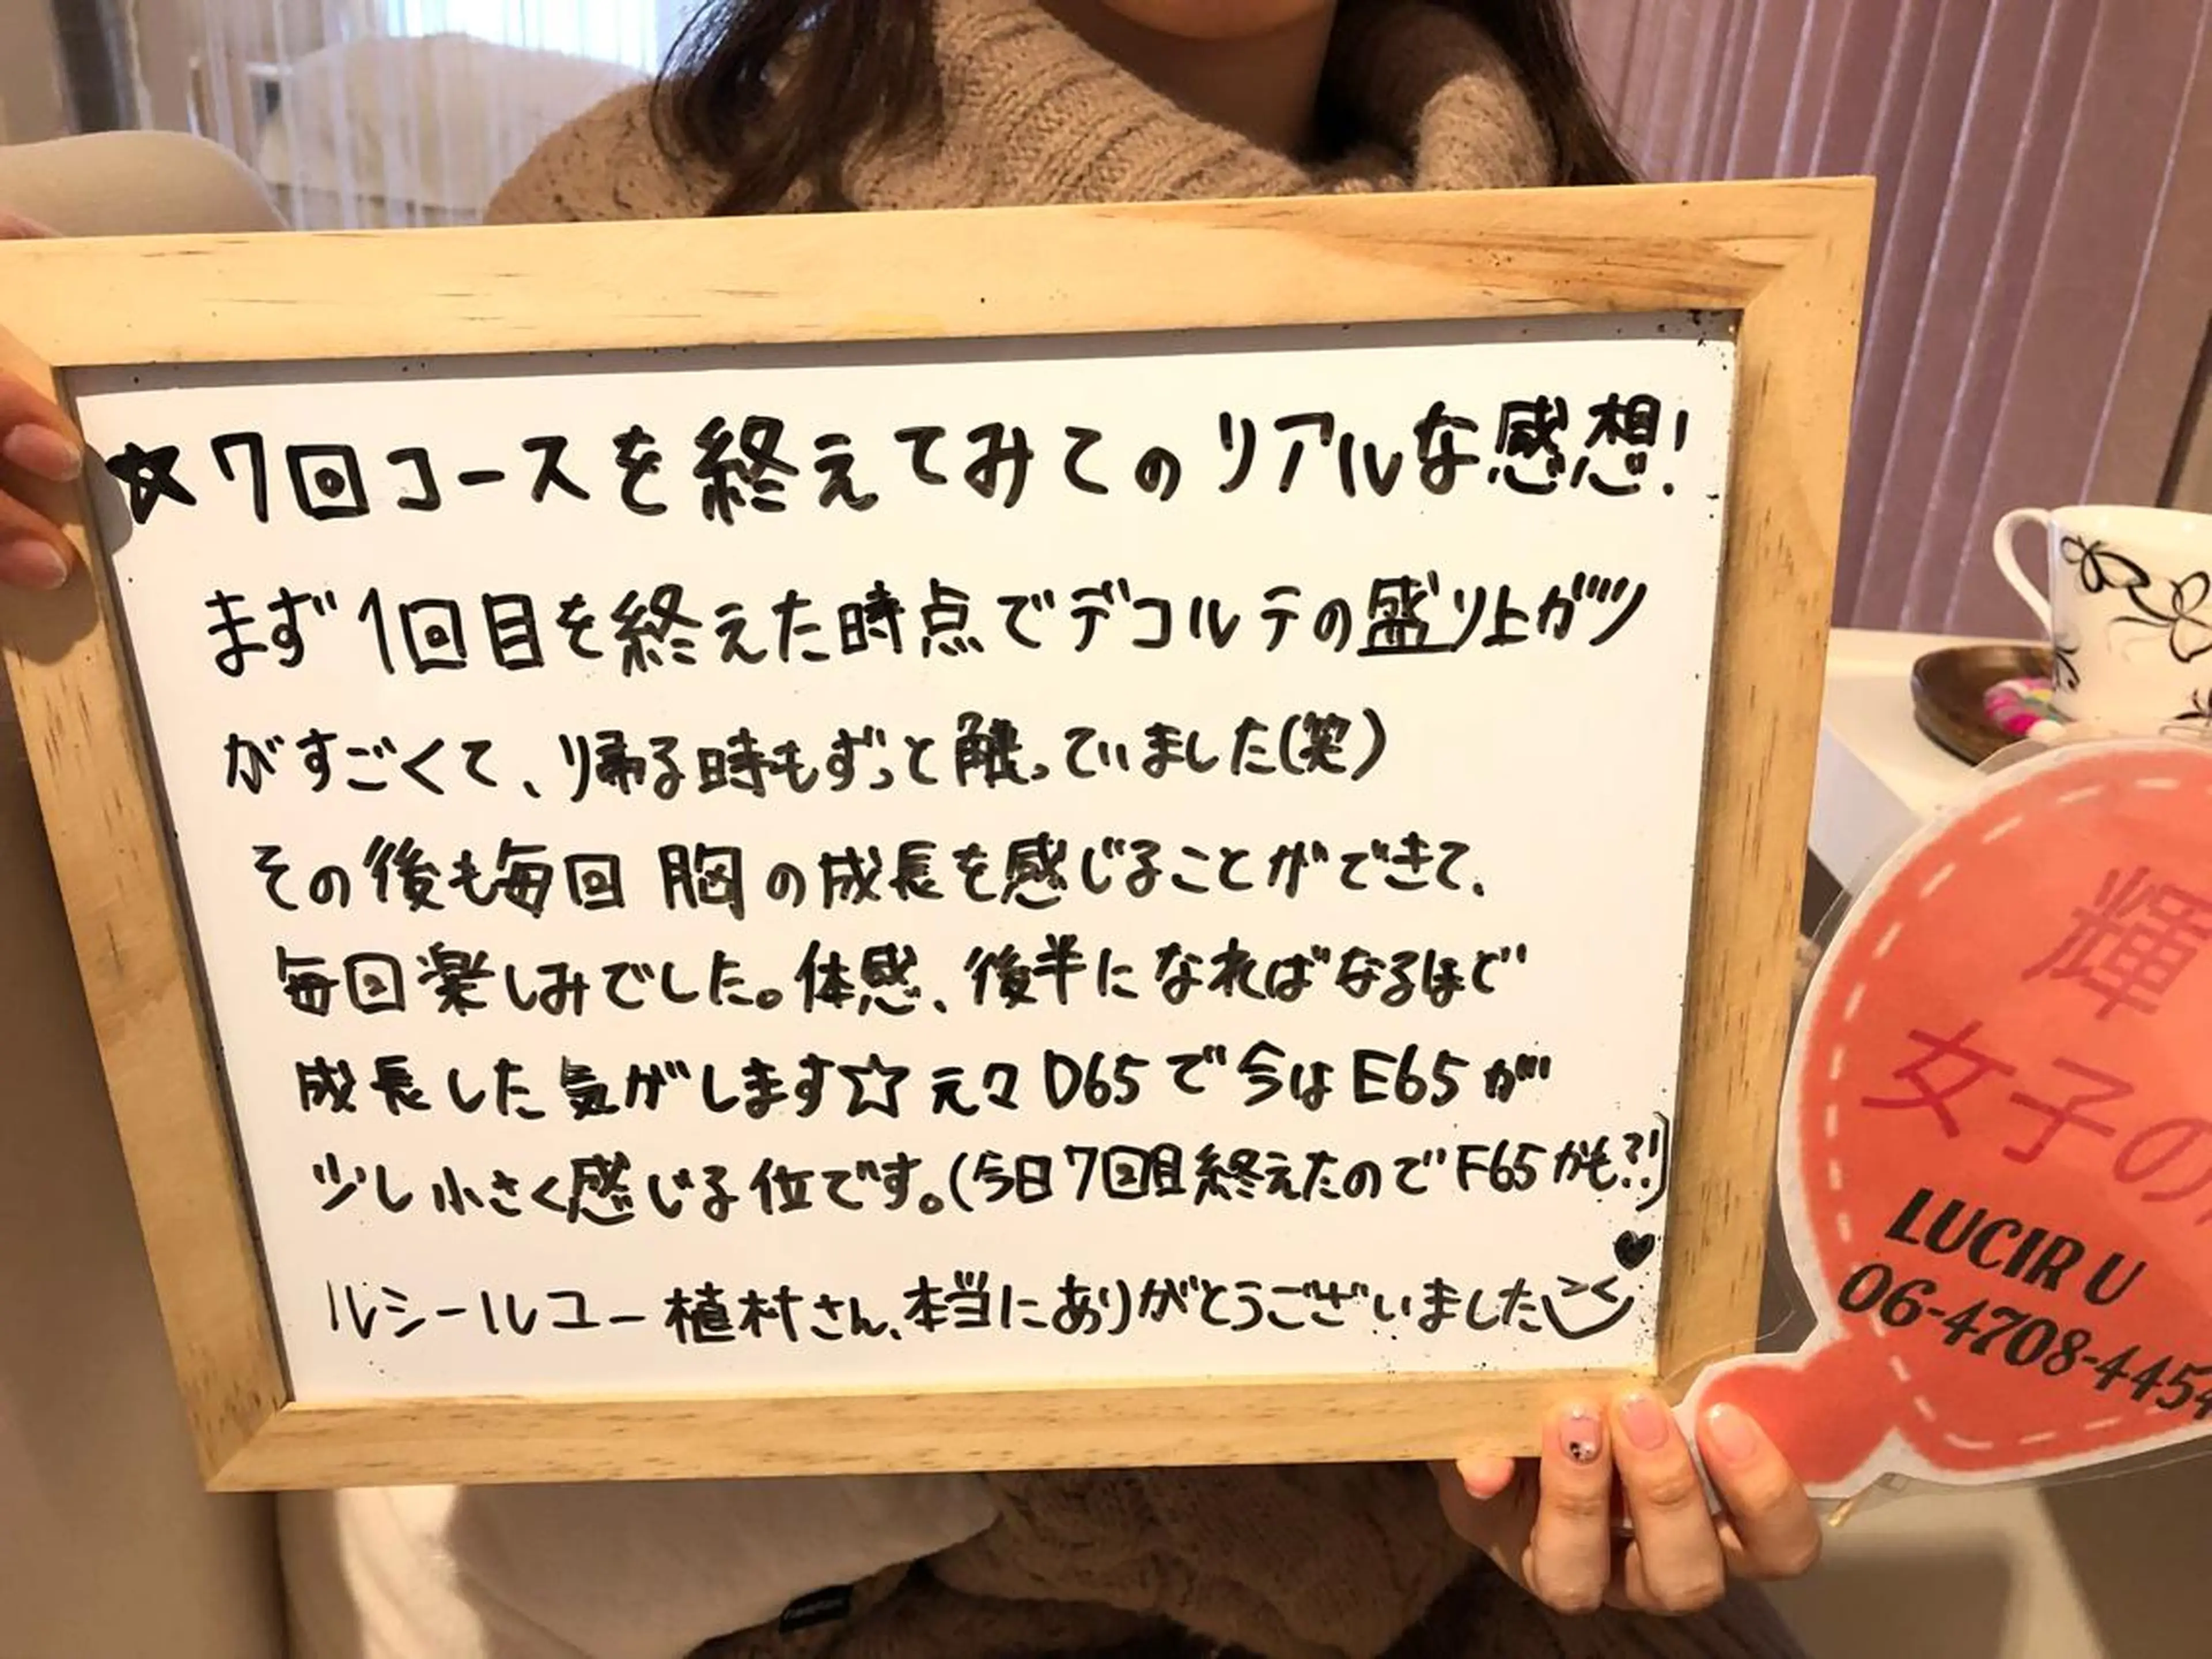 ★7回コースを終えてみてのリアルな感想!
まず1回目を終えた時点でデコルテの盛り上がり
がすごくて、帰る時もずっと触っていました(笑)
その後も毎回 胸の成長を感じることができて、
毎回楽しみでした。体感、後半になればなるほど
成長した気がします☆元々D65で今はE65が
少し小さく感じる位です。(今日7回目終えたのでF65かも?!)
ルシールユー植村さん、本当にありがとうございました♥
輝
女子の
LUCIR U
06-4708-445